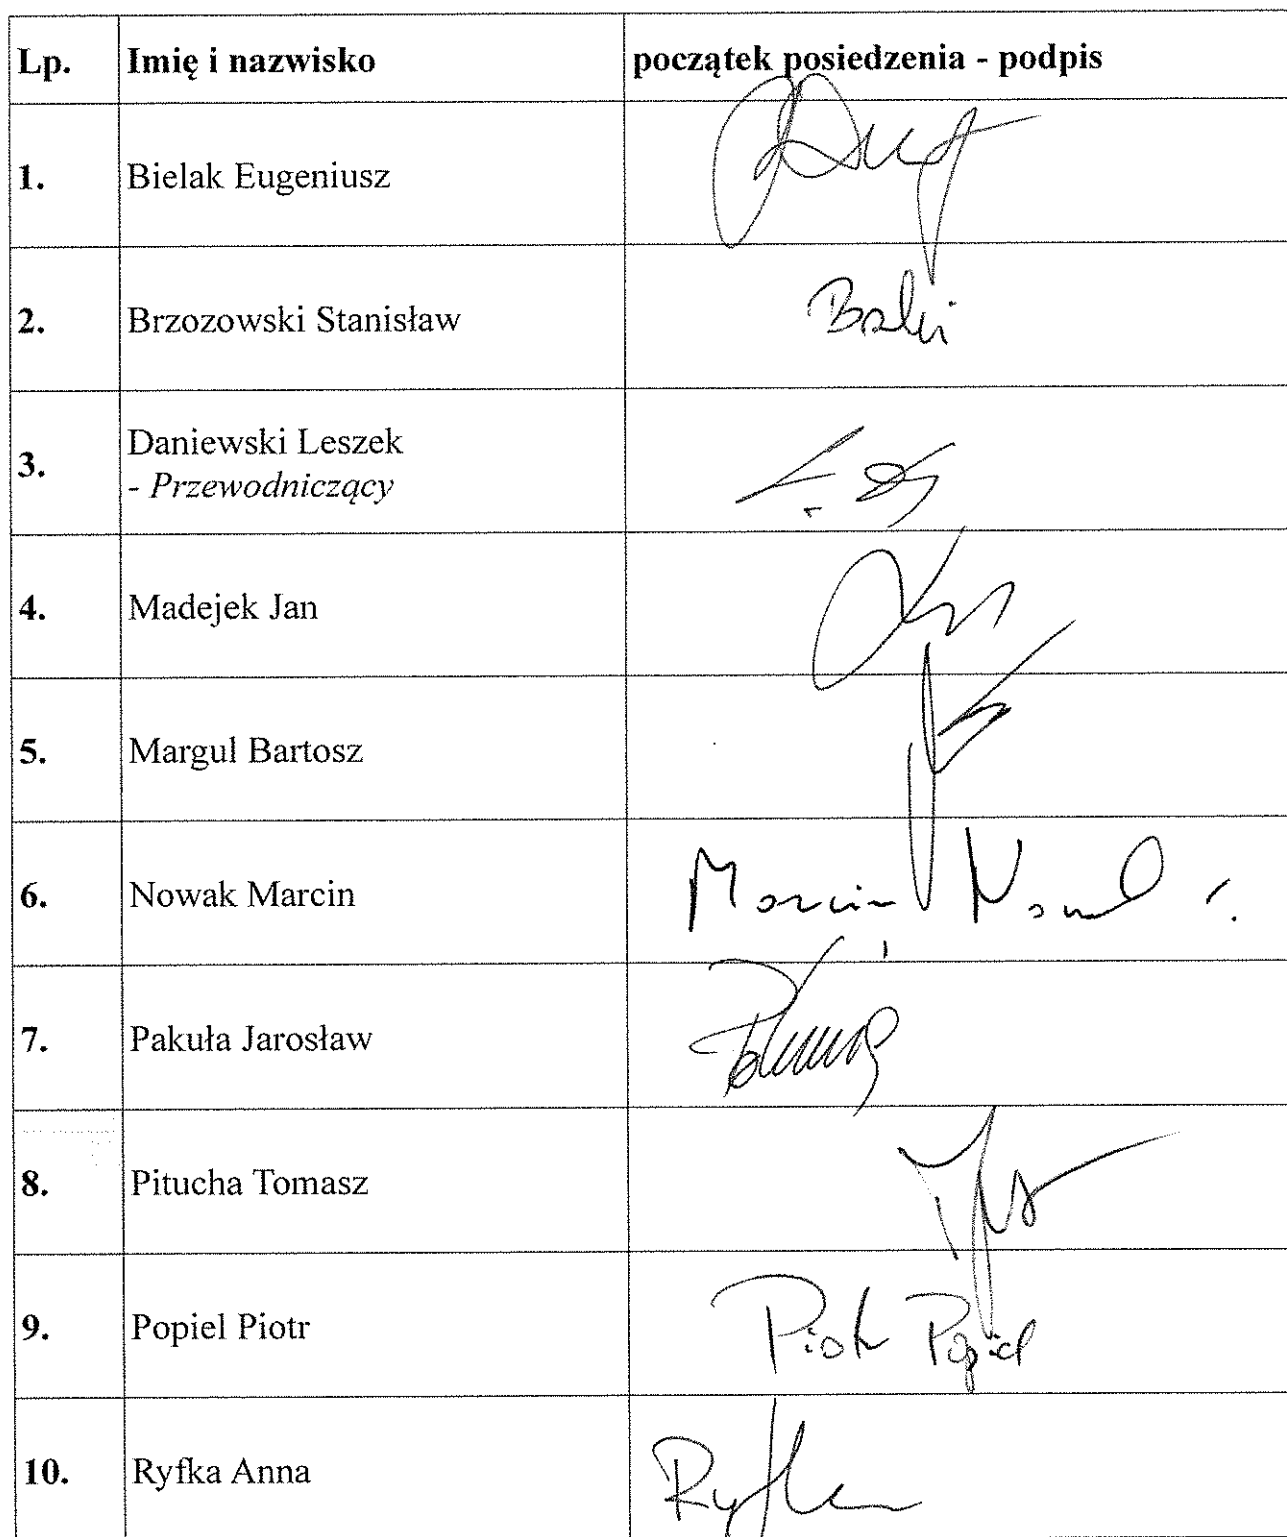 Lp. Imię i nazwisko początek posiedzenia - podpis
1. Bielak Eugeniusz
2. Brzozowski Stanisław
3. Daniewski Leszek
- Przewodniczący
4. Madejek Jan
5. Margul Bartosz
6. Nowak Marcin Marcin Nowak
7. Pakuła Jarosław
8. Pitucha Tomasz
9. Popiel Piotr Piotr Popiel
10. Ryfka Anna Ryfka